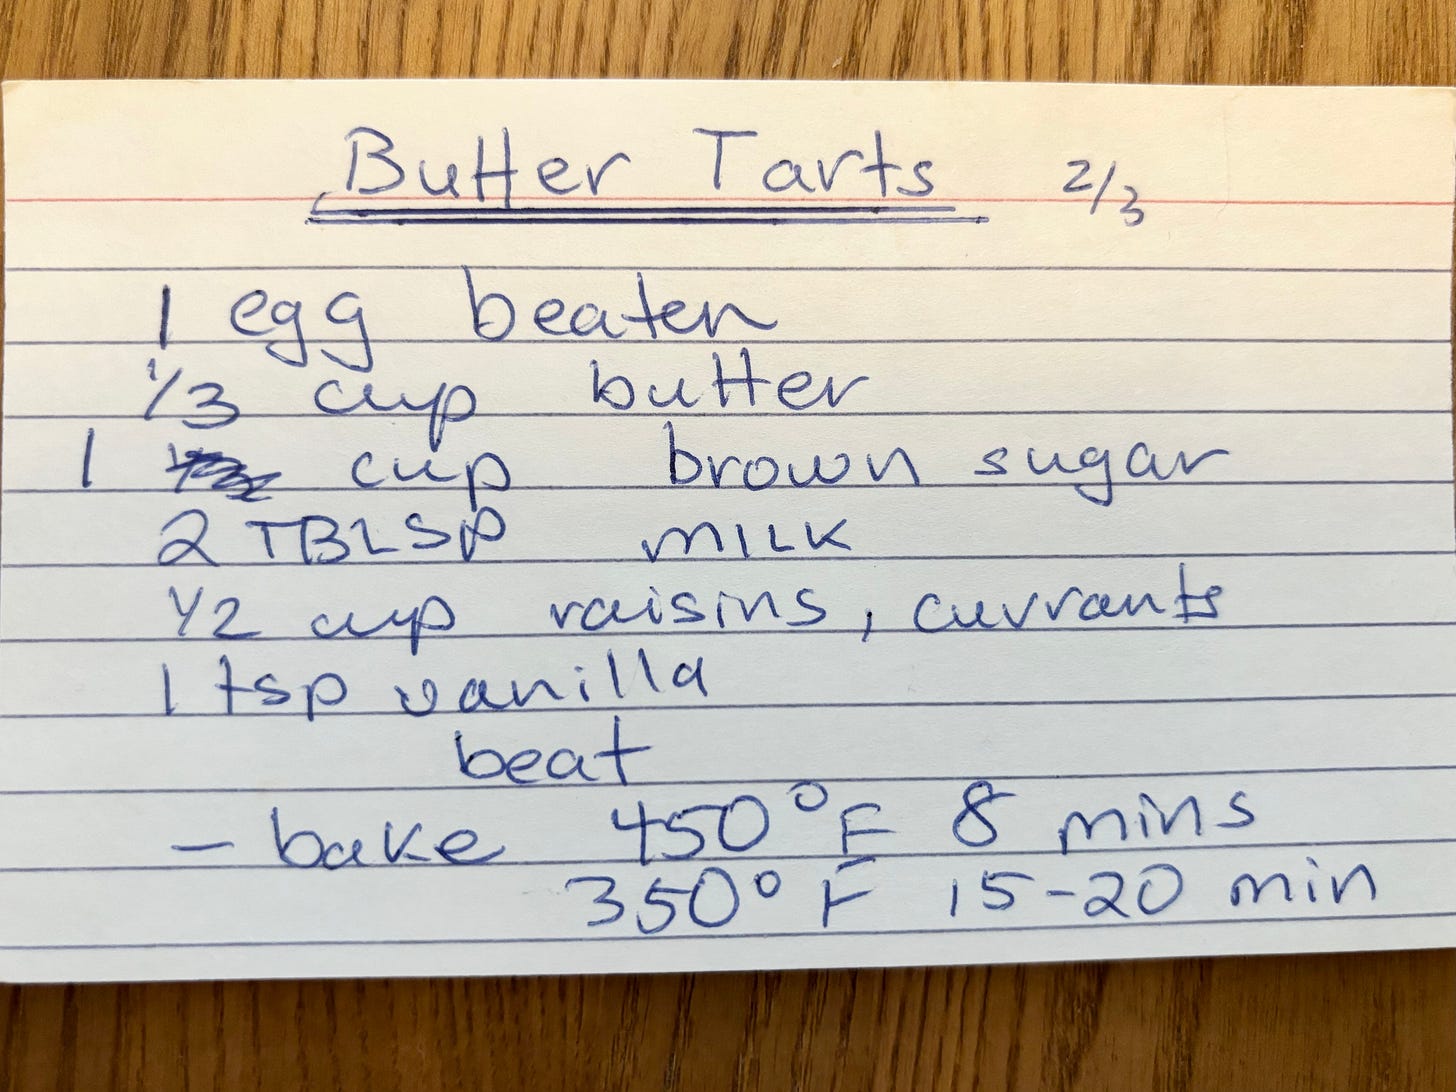 Butter Tarts 2/3
1 egg beaten
1/3 cup butter
1 cup brown sugar
2 TBLSP MILK
1/2 cup raisins, currants
1 tsp vanilla
beat
- bake 450°F 8 mins
350°F 15-20 min